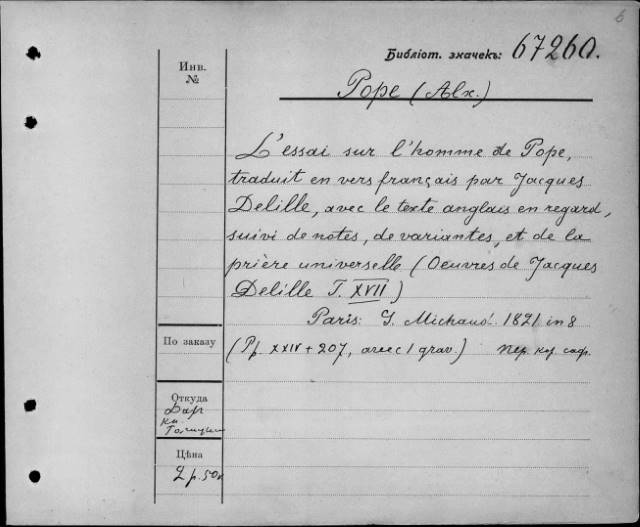 6
Библіот. значекъ: 67260.
Инв.
№
Pope (Alx.)
L'essai sur l'homme de Pope,
traduit en vers français par Jacques
Delille, avec le texte anglais en regard,
suivi de notes, de variantes, et de la
prière universelle (Oeuvres de Jacques
Delille T. XVII)
Paris: G. Michaud. 1821 in 8
По заказу
(Pp. XXIV + 207, avec 1 grav.) пер. кр. саф.
Откуда
Дар
кн.
Голицын
Цѣна
2 р. 50к